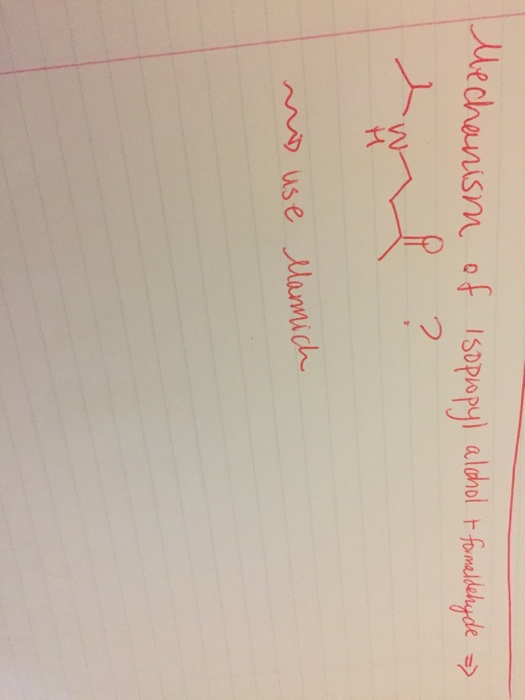 Mechanism of isopropyl alcohol + formaldehyde ⇒
N
H
O
?
⇝ use Mannich